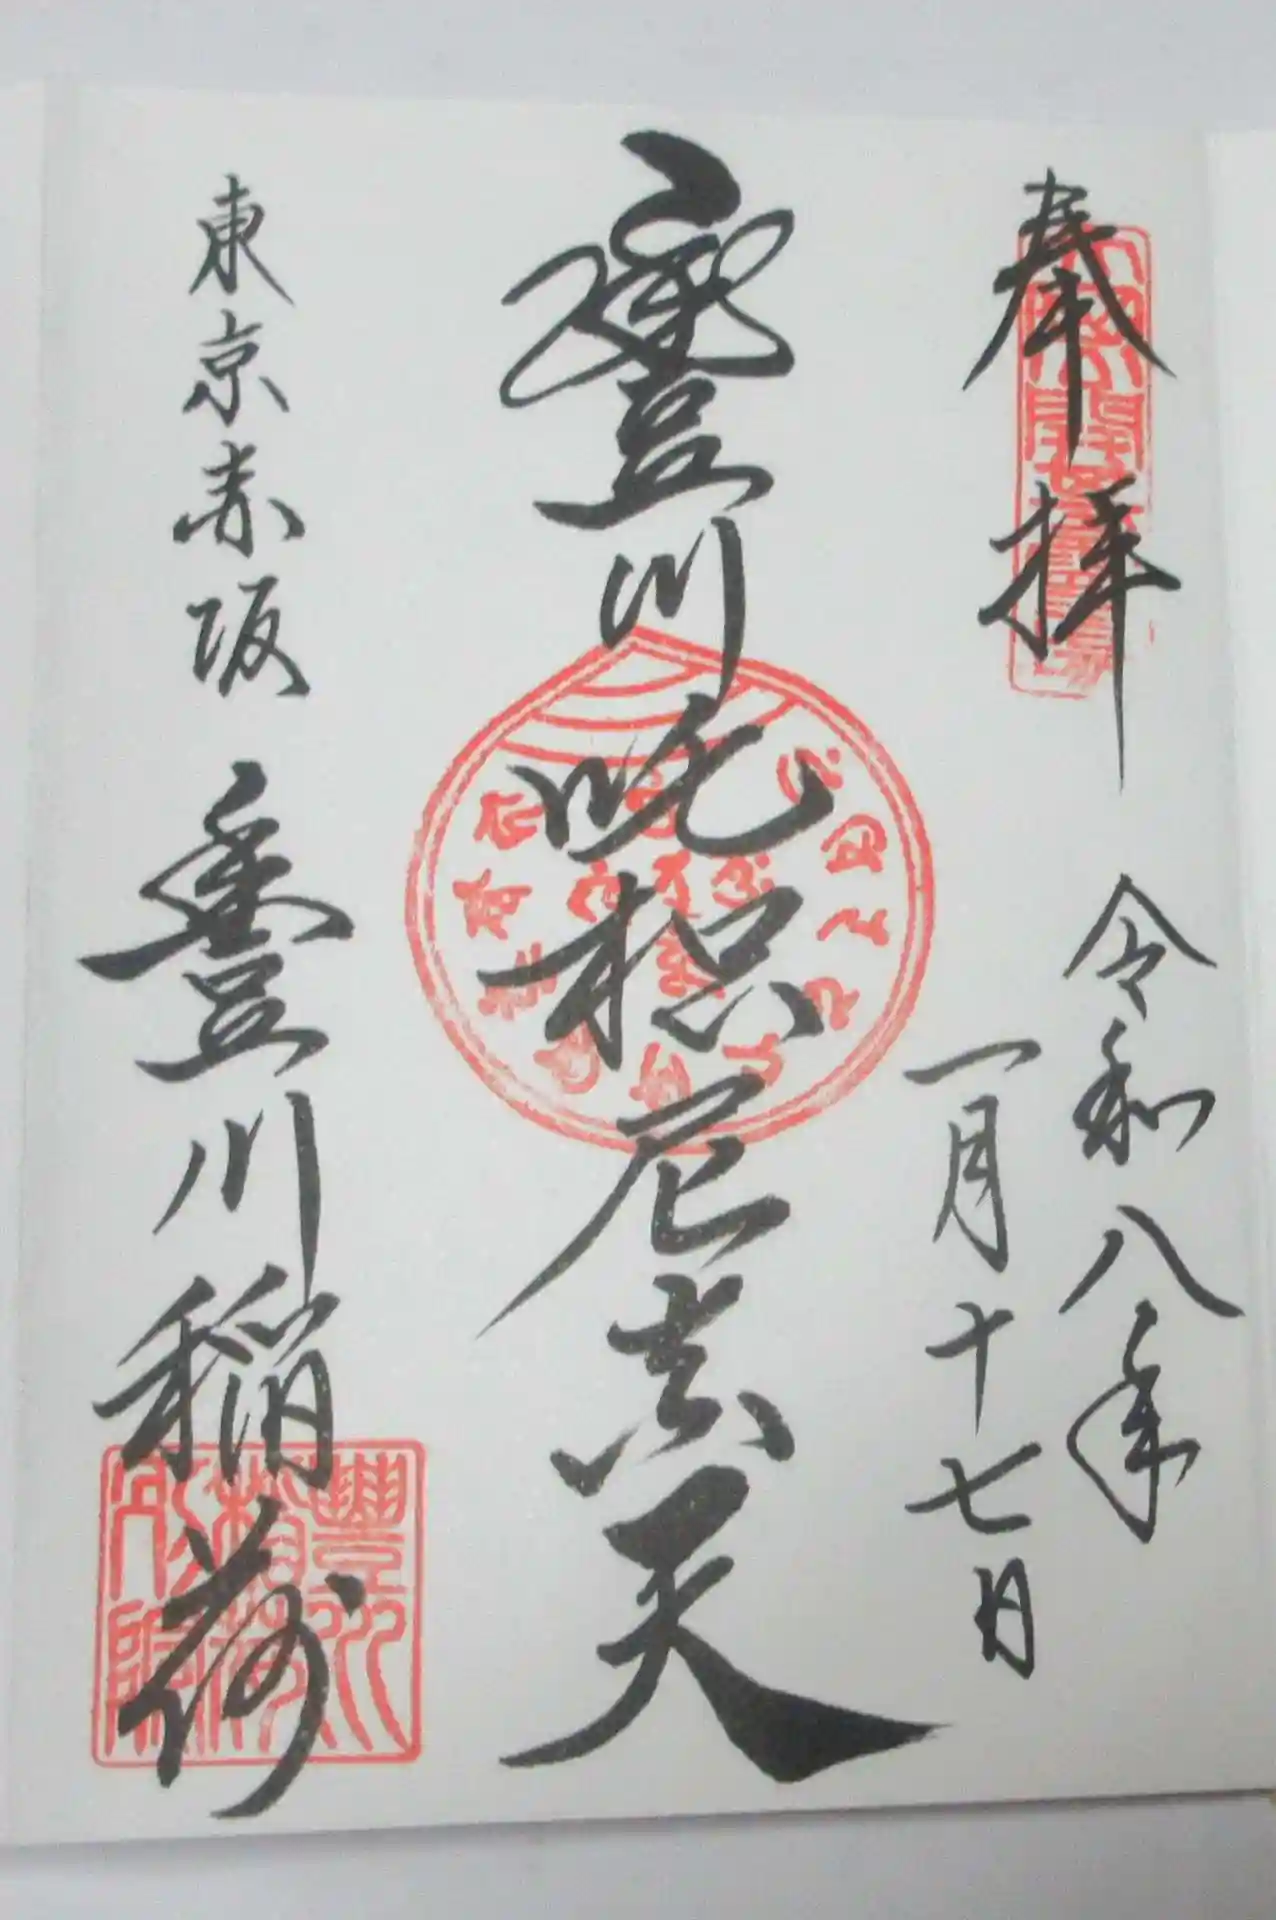 奉拝
令和八年
一月十七日
豊川吒枳尼真天
東京赤坂
豊川稲荷